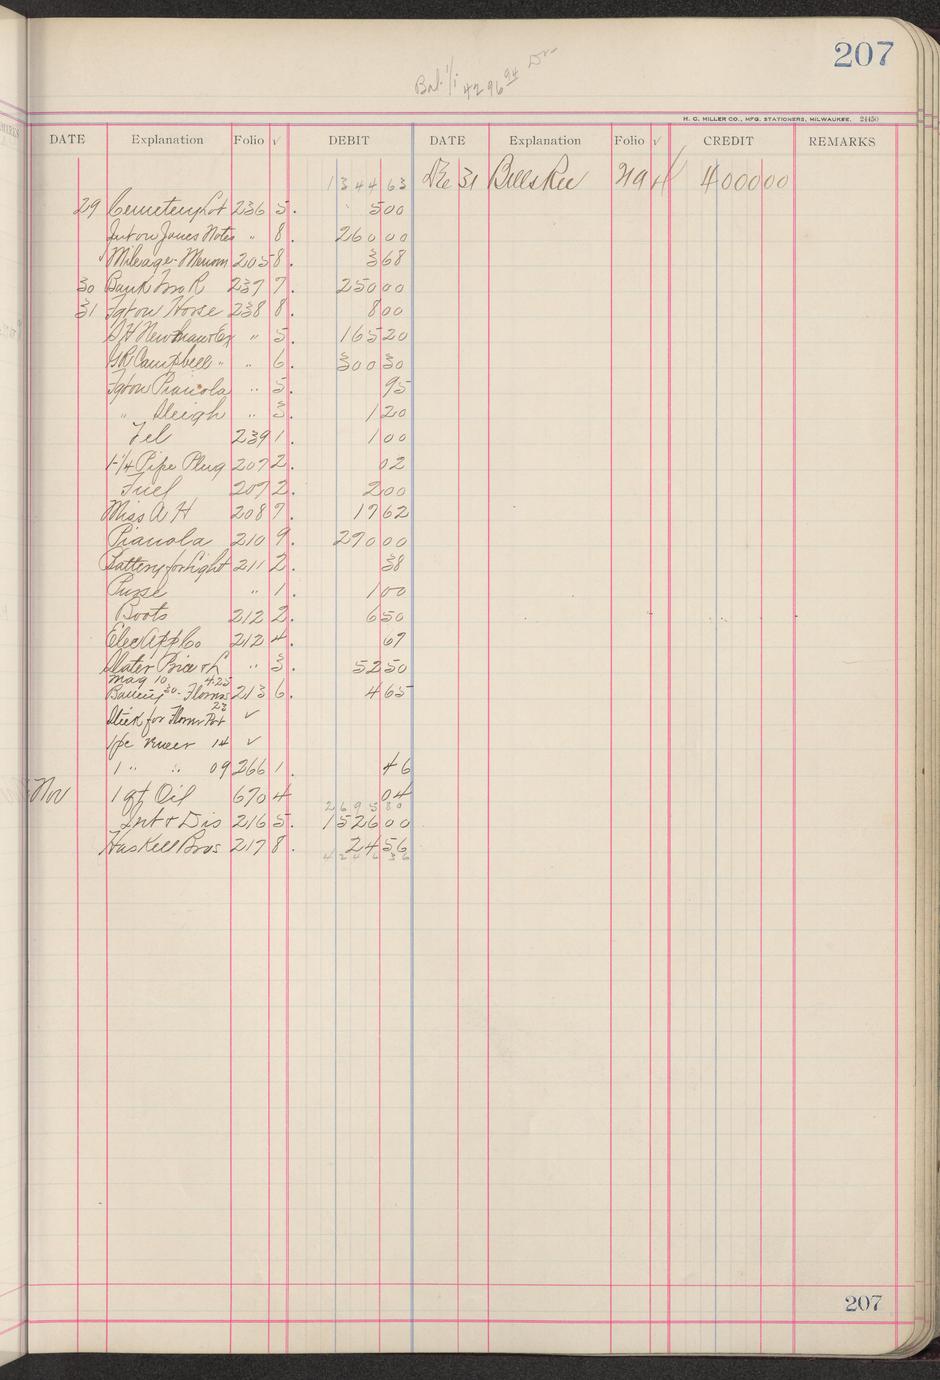 207
Bal. 1/1 4296 94 Dr
H. C. MILLER CO., MFG. STATIONERS, MILWAUKEE. 24450
DATE Explanation Folio √ DEBIT DATE Explanation Folio √ CREDIT REMARKS
1344 63 Dec 31 Bills Rec 219 4 4000 00
29 Cemetery Lot 236 5. 5 00
Int on Jones Notes " 8. 260 00
Mileage- 205 8. 3 68
30 Bank 237 7 250 00
31 Fgt on Horse 238 8. 8 00
" 5. 165 20
G R Campbell " " 6. 300 30
Fgt on Pianola " 5. 95
" Sleigh " 3. 1 20
Tel 239 1. 1 00
1-1/4 Pipe Plug 207 2. 02
Fuel 207 2. 2 00
Miss A H 208 7. 17 62
Pianola 210 9. 270 00
Battery for Light 211 2 38
Purse " 1. 1 00
Boots 212 2. 6 50
Elec App Co 212 4. 67
Slater Brice & L " 3. 52 50
Mag 10 4.25
30- 213 6. 4 65
23
Stick for √
1 pc 14 √
1 " " 09 266 1. 46
Nov 1 qt Oil 670 4 04
2695 80
Int & Dis 216 5. 1526 00
Haskell Bros 217 8. 24 56
4246 36
207